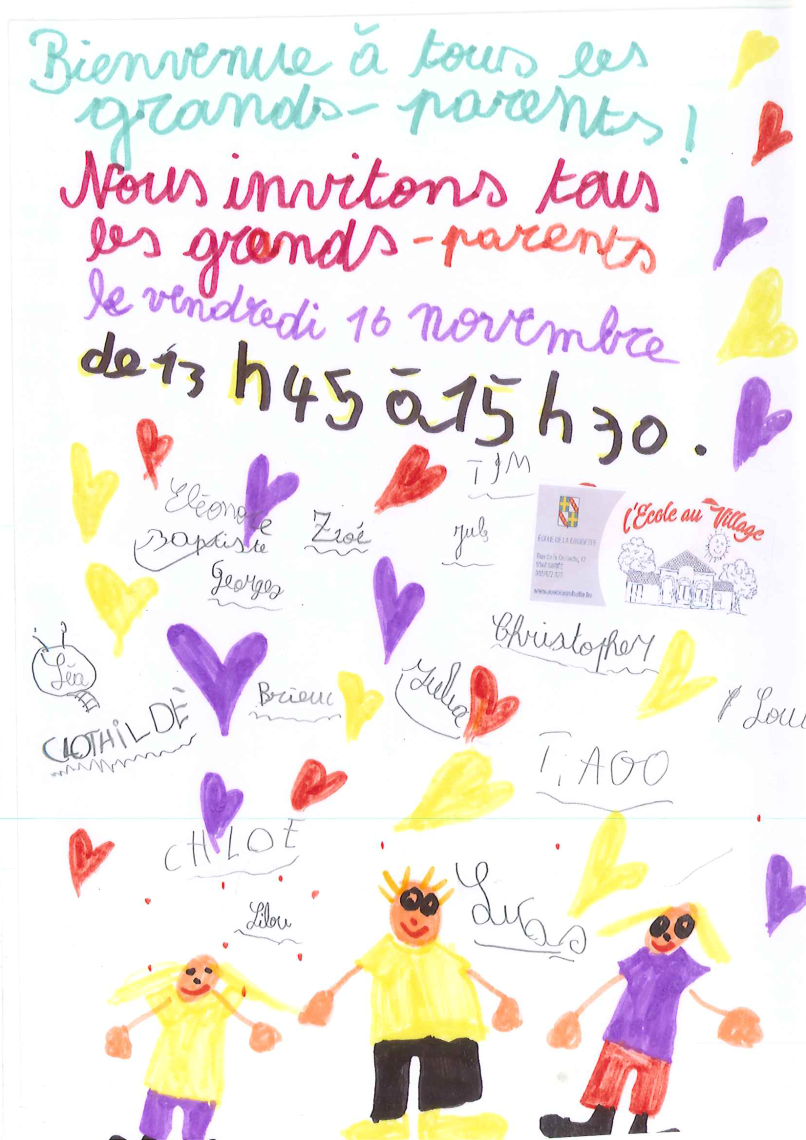 Bienvenue à tous les
grands-parents !
Nous invitons tous
les grands-parents
le vendredi 16 novembre
de 13 h 45 à 15 h 30.
TIM
Eléonore
Baptiste
Zoé
Jules
l'Ecole au Village
Georges
Christopher
Léa
Brieuc
Julia
Lou
CLOTHILDE
TiAGO
CHLOE
Lilou
Lucas